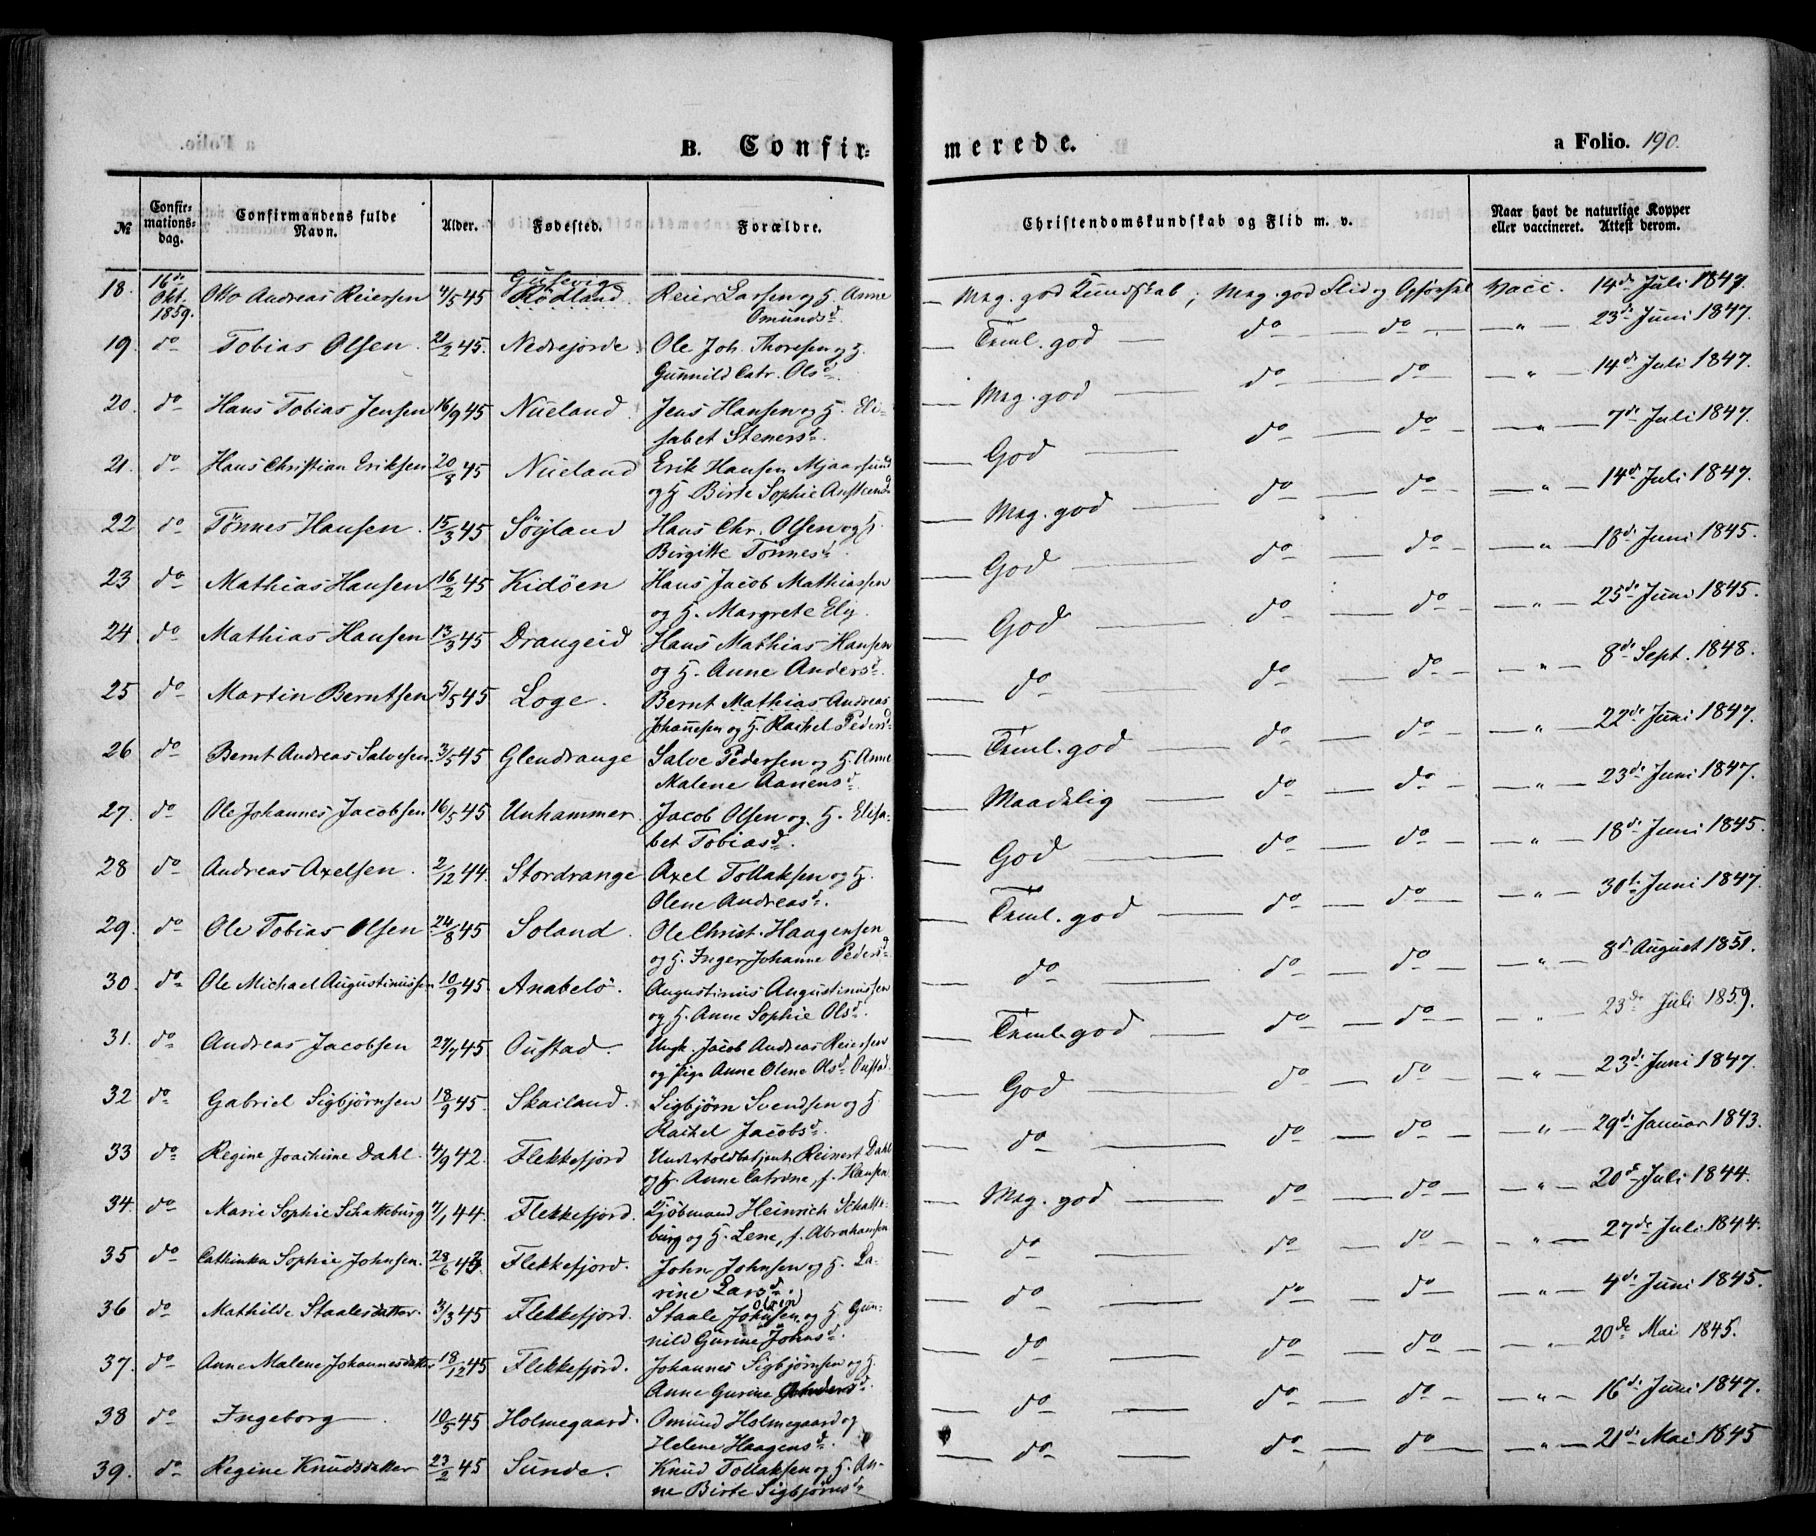 B. Confir-
merede.
a Folio. 190.
№
Confir-
mations-
dag.
Confirmandens fulde
Navn.
Alder.
Fødested.
Forældre.
Christendomskundskab og Flid m. v.
Naar havt de naturlige Kopper
eller vaccineret. Attest derom.
18. 16de Okt. 1859. Otto Andreas Reiersen 4/5 45 Rødland Reier Larsen og H. Anne
Omundsd. — Meg. god Kundskab; Meg. god Flid og Opførsel Vacc. 14de Juli 1847.
19. do Tobias Olsen. 21/2 45. Nedrejorde Ole Joh. Thoresen og H.
Gunnild Catr. Olsd. — Teml. god — do — do — " — 23de Juni 1847.
20. do Hans Tobias Jensen 16/9 45 Nueland. Jens Hansen og H. Eli-
sabet Stenersd. — Meg. god — do — do — " — 14de Juli 1847.
21. do Hans Christian Eriksen 20/8 45 Nueland Erik Hansen Mjaarsund
og H. Birte Sophie — God — do — do — " — 7de Juli 1847.
22 do Tönnes Hansen. 15/3 45 Söyland Hans Chr. Olsen og H.
Birgitte Tönnesd. — Meg. god — do — do — " — 14de Juli 1847.
23 do Mathias Hansen 16/2 45 Kidöen Hans Jacob Mathiassen
og H. Margrete Ely. — God — do — do — " — 18de Juni 1845.
24. do Mathias Hansen 13/3 45 Drangeid Hans Mathias Hansen
og H. Anne Andersd. — God — do — do — " — 25de Juni 1845.
25 do Martin Berntsen 5/5 45 Loge. Bernt Mathias Andreas
Johannesen og H. Rachel Pedersd. — do — do — do — " — 8de Sept. 1848.
26 do Bernt Andreas Salvesen. 3/5 45 Glendrange Salve Pedersen og H. Anne
Malene Aanensd. — Teml. god — do — do — " — 22de Juni 1847.
27. do Ole Johannes Jacobsen 16/5 45 Unhammer. Jacob Olsen og H. Elisa-
bet Tobiasd. — Maadelig — do — do — " — 23de Juni 1847.
28 do Andreas Axelsen. 2/12 44. Stordrange Axel Tollaksen og H.
Olene Andreasd. — God — do — do — " — 18de Juni 1845.
29. do Ole Tobias Olsen 24/8 45 Soland. Ole Christ. Haagensen
og H. Inger Johanne Pedersd. — Teml. god — do — do — " — 30te Juni 1847.
30. do Ole Michael Augustinussen 10/9 45 Anabelö. Augustinus Augustinussen
og H. Anne Sophie Olsd. — do — do — do — " — 8de August 1851.
31. do Andreas Jacobsen 27/7 45. Oustad. Ungk. Jacob Andreas Reiersen
og Pige Anne Olene Olsd. Oustad. — Teml. god — do — do — " — 23de Juli 1859.
32 do Gabriel Sigbjørnsen 18/9 45. Skailand. Sigbjørn Svendsen og H.
Rachel Jacobsd. — God — do — do — " — 23de Juni 1847.
33 do Regine Joachime Dahl. 4/9 42. Flekkefjord Undertoldbetjent Reinert Dahl
og H. Anne Catrine, f. Hansen — do — do — do — " — 29de Januar 1843.
34. do Marie Sophie Schatteburg 7/1 44. Flekkefjord. Kjöbmand Heinrich Schatte-
burg og H. Lene, f. Abrahamsen — Meg. god — do — do — " — 20de Juli 1844.
35 do Cathinka Sophie Johnsen. 28/6 43. Flekkefjord. John Johnsen og H. La-
rine Larsd. — do — do — do — " — 27de Juli 1844.
36 do Mathilde Staalesdatter. 3/3 45 Flekkefjord. Staale Johnsen og H. Gun-
nild Gurine Johnsd. — do — do — do — " — 4de Juni 1845.
37. do Anne Malene Johannesdatter 18/12 45 Flekkefjord. Johannes Sigbjørnsen og H.
Anne Gurine — do — do — do — " — 20de Mai 1845.
38 do Ingeborg 10/5 45 Holmegaard. Omund Holmegaard og
Helene Haagensd. — do — do — do — " — 16de Juni 1847.
39. do Regine Knudsdatter 23/2 45 Sunde. Knud Tollaksen og H. An-
ne Birte Sigbjørnsd. — do — do — do — " — 21de Mai 1845